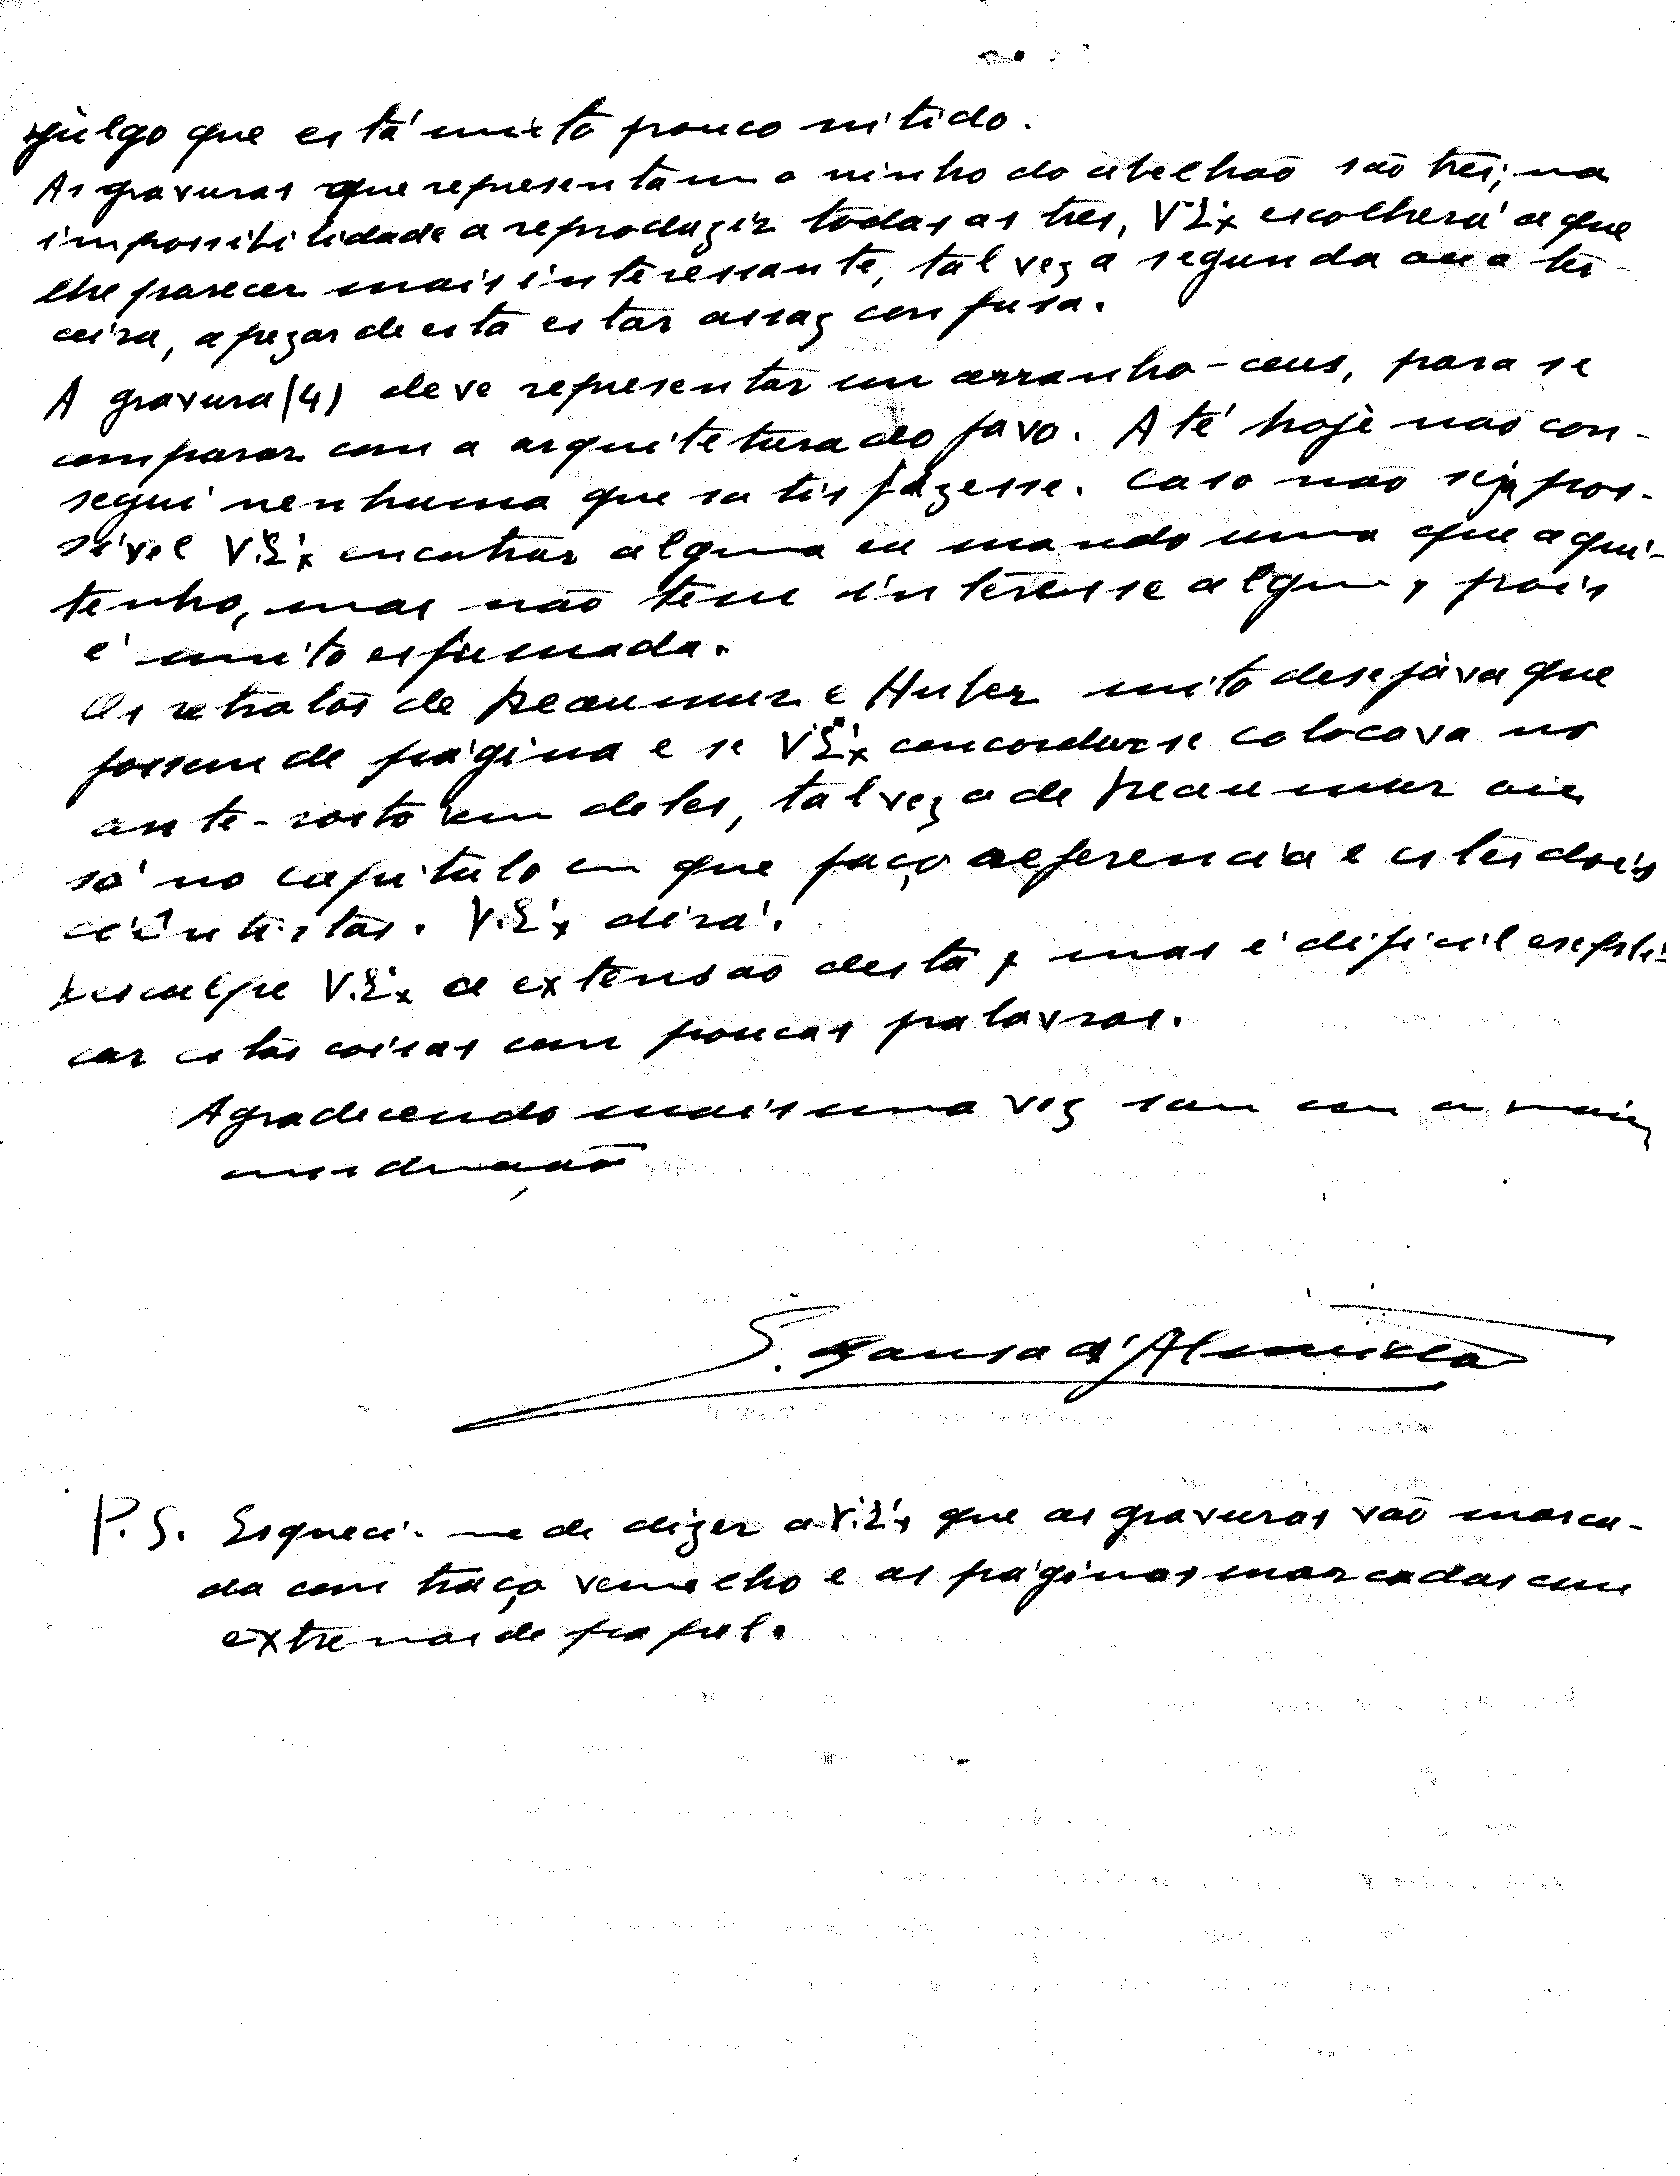 julgo que está muito pouco nitido.
As gravuras que representam o ninho do abelhão são três; na
impossibilidade a reproduzir todas as tres, V.Ex escolherá a que
lhe parecer mais interessante, talvez a segunda ou a ter-
ceira, apezar de esta estar assaz confusa.
A gravura (4) deve representar um arranho-ceus, para se
comparar com a arquitetura do favo. Até hoje não con-
segui nenhuma que satisfizesse. Caso não seja pos-
sível V.Ex encontrar alguma eu mando uma que aqui
tenho, mas não tem interesse algum, pois
é muito esfumada.
Os retratos de Reaumur e Huber muito desejava que
fossem de página e se V.Ex concordasse colocava no
ante-rosto um deles, talvez o de Reaumur ou
só no capitulo em que faço referencia a estes dois
cientistas. V.Ex dirá.
Desculpe V.Ex a extensão desta, mas é dificil expli-
car estas coisas com poucas palavras.
Agradecendo mais uma vez sou com a maior
consideração
S. Sousa d'Almeida
P.S. Esqueci-me de dizer a V.Ex que as gravuras vão marca-
da com traço vermelho e as páginas marcadas com
extremos de papel.